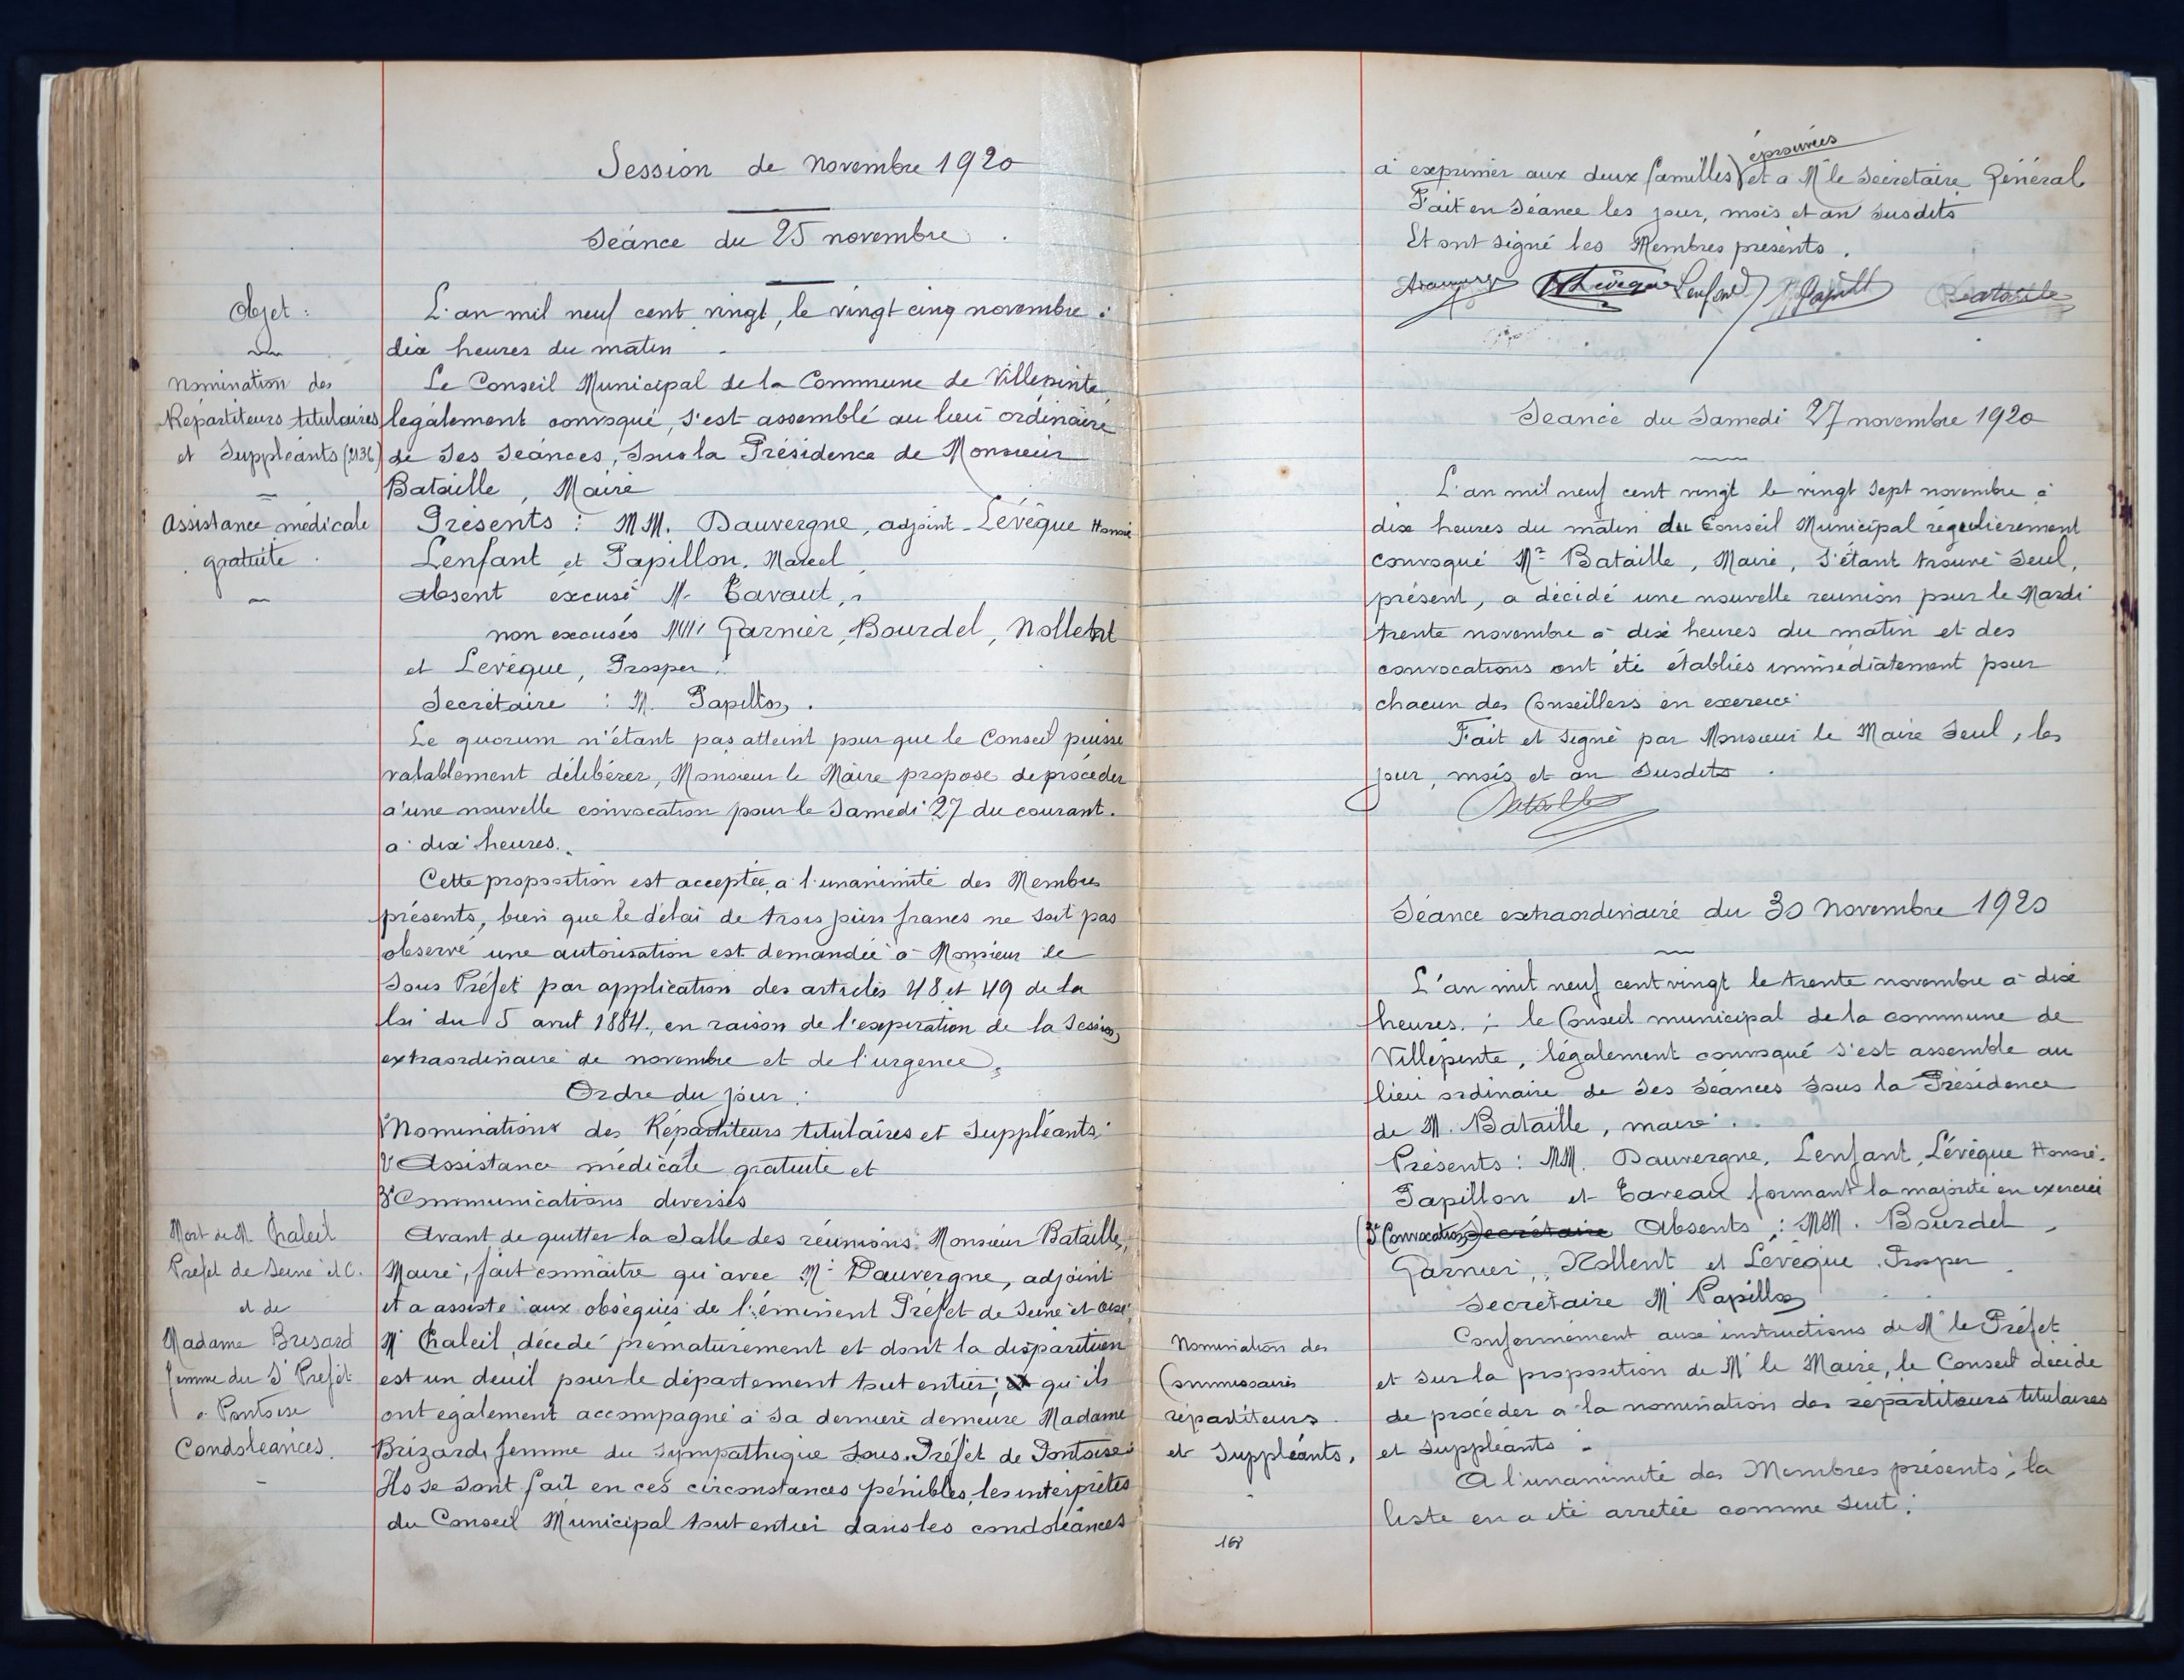 Session de Novembre 1920
Séance du 25 novembre.
Objet :
Nomination des
Répartiteurs titulaires
et Suppléants (2136)
Assistance médicale
gratuite.
L'an mil neuf cent vingt, le vingt cinq novembre à
dix heures du matin.
Le Conseil Municipal de la Commune de Villepinte,
légalement convoqué, s'est assemblé au lieu ordinaire
de ses Séances, sous la Présidence de Monsieur
Bataille, Maire
Présents : MM. Dauvergne, adjoint - Levêque Honoré
Lenfant et Papillon, Marcel,
absent excusé M. Tavaut,
non excusés MM. Garnier, Bourdel, Nollent
et Levêque, Prosper.
Secrétaire : M. Papillon.
Le quorum n'étant pas atteint pour que le Conseil puisse
valablement délibérer, Monsieur le Maire propose de procéder
à une nouvelle convocation pour le Samedi 27 du courant.
à dix heures.
Cette proposition est acceptée à l'unanimité des Membres
présents, bien que le délai de trois jours francs ne soit pas
observé une autorisation est demandée à Monsieur le
Sous Préfet par application des articles 48 et 49 de la
loi du 5 avril 1884, en raison de l'expiration de la Session
extraordinaire de novembre et de l'urgence.
Ordre du jour :
1° Nominations des Répartiteurs titulaires et Suppléants.
2° Assistance médicale gratuite et
3° Communications diverses
Mort de M. Chaleil
Préfet de Seine et O.
et de
Madame Brisard
femme du S' Préfet
à Pontoise
Condoléances.
Avant de quitter la salle des réunions Monsieur Bataille,
Maire, fait connaître qu'avec M. Dauvergne, adjoint
et a assisté aux obsèques de l'éminent Préfet de Seine et Oise,
M. Chaleil, décédé prématurément et dont la disparition
est un deuil pour le département tout entier; et qu'ils
ont également accompagné à sa dernière demeure Madame
Brizard, femme du sympathique Sous-Préfet de Pontoise.
Ils se sont fait en ces circonstances pénibles, les interprètes
du Conseil Municipal tout entier dans les condoléances
éprouvées
à exprimer aux deux familles et à M. le Secrétaire Général
Fait en Séance les jour, mois et an susdits
Et ont signé les Membres présents.
Dauvergne HLevêque Lenfant M Papill Bataille
Séance du Samedi 27 novembre 1920
L'an mil neuf cent vingt le vingt sept novembre à
dix heures du matin du Conseil Municipal régulièrement
convoqué Mr Bataille, Maire, s'étant trouvé seul,
présent, a décidé une nouvelle réunion pour le Mardi
trente novembre à dix heures du matin et des
convocations ont été établies immédiatement pour
chacun des Conseillers en exercice
Fait et signé par Monsieur le Maire seul, les
jour, mois et an susdits.
Bataille
Séance extraordinaire du 30 Novembre 1920
L'an mil neuf cent vingt le trente novembre à dix
heures. ; le Conseil municipal de la commune de
Villepinte, légalement convoqué s'est assemblé au
lieu ordinaire de ses séances sous la Présidence
de M. Bataille, maire.
Présents : MM. Dauvergne, Lenfant, Lévêque Honoré,
Papillon et Taveau formant la majorité en exercice
(3e Convocation) Secrétaire Absents : MM. Bourdel,
Garnier, Nollent et Levêque Prosper.
Secrétaire M. Papillon
Nomination des
Commissaires
répartiteurs
et Suppléants.
Conformément aux instructions de M. le Préfet
et sur la proposition de M. le Maire, le Conseil décide
de procéder à la nomination des répartiteurs titulaires
et suppléants.
A l'unanimité des Membres présents, la
liste en a été arrêtée comme suit :
168